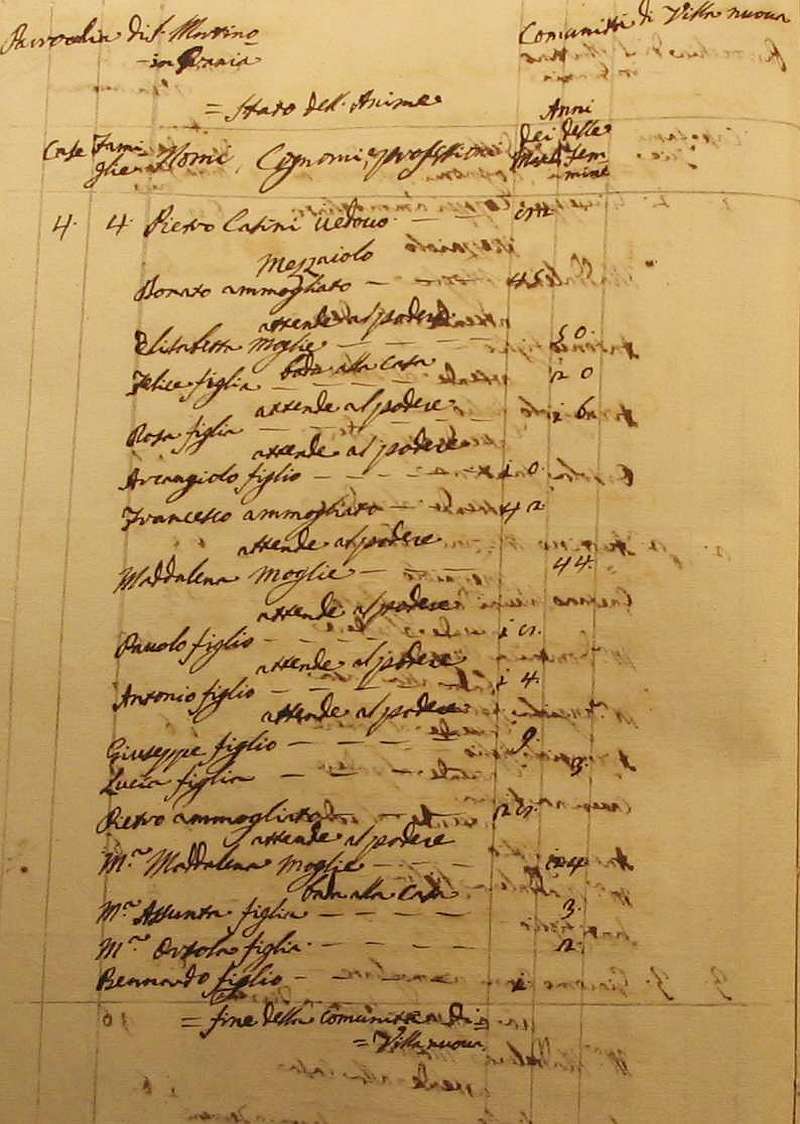 Parrochia di S. Martino
in
Comunità di Villa nuova
= Stato dell'Anime
Case Fami-glie Nomi, Cognomi, e professioni
Anni dei Mas. delle Fem-mine
4. 4. Pietro Casini Vedovo
Mezzaiolo
Donato ammogliato
attende al podere
Elisabetta Moglie 50
bada alla casa
Felice figlia 20
attende al podere
Rosa figlia 16
attende al podere
Arcangiolo figlio 10
Francesco ammogliato 42
attende al podere
Maddalena Moglie 44
attende al podere
Pauolo figlio
attende al podere
Antonio figlio 14
attende al podere
Giuseppe figlio 9
Lucia figlia 3
Pietro ammogliato
attende al podere
M.a Maddalena Moglie
bada alla casa
M.a Assunta figlia 3
M.a Orsola figlia 2
Bernardo figlio 1
= fine della Comunità di
= Villa nuova